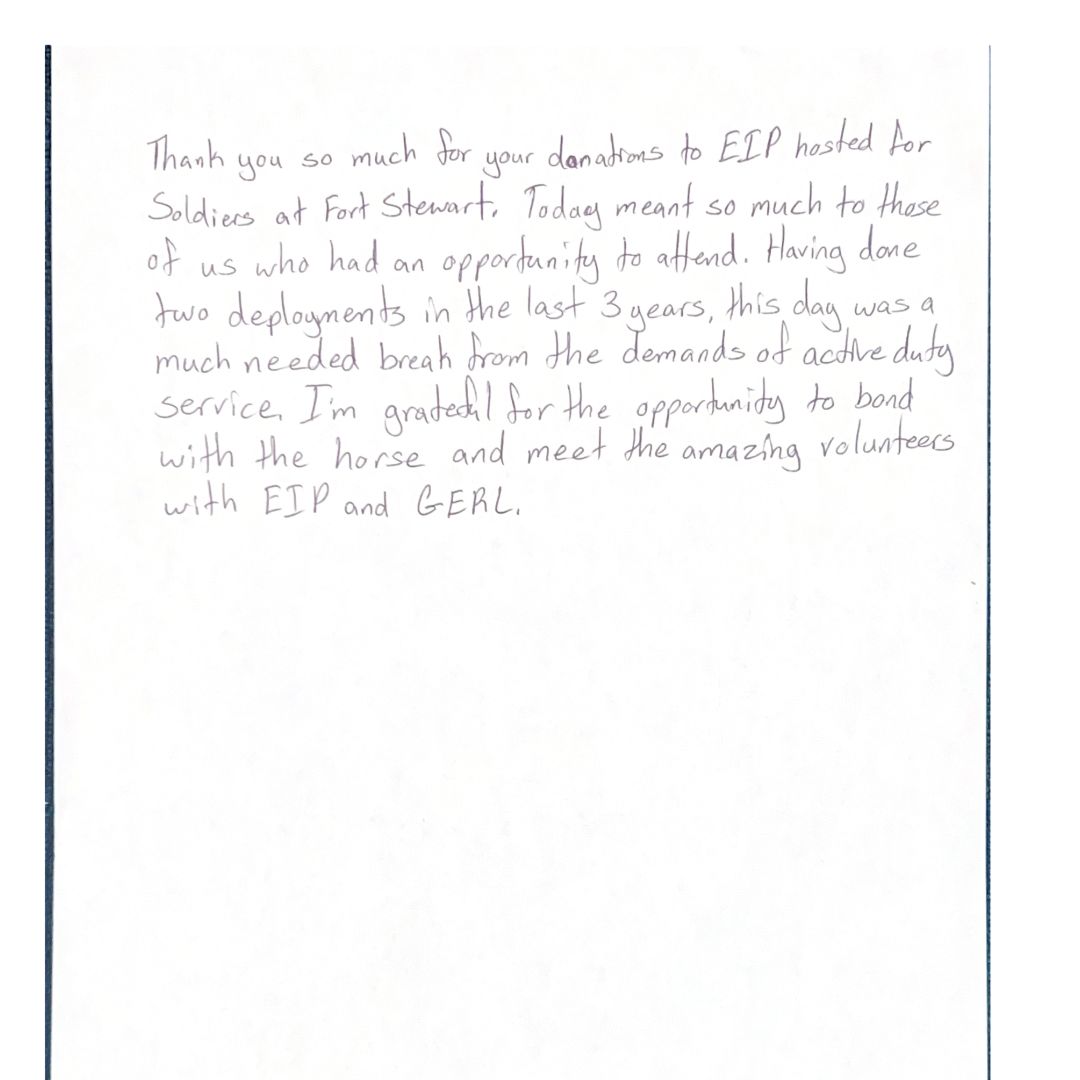 Thank you so much for your donations to EIP hosted for
Soldiers at Fort Stewart. Today meant so much to those
of us who had an opportunity to attend. Having done
two deployments in the last 3 years, this day was a
much needed break from the demands of active duty
service. I'm grateful for the opportunity to bond
with the horse and meet the amazing volunteers
with EIP and GERL.